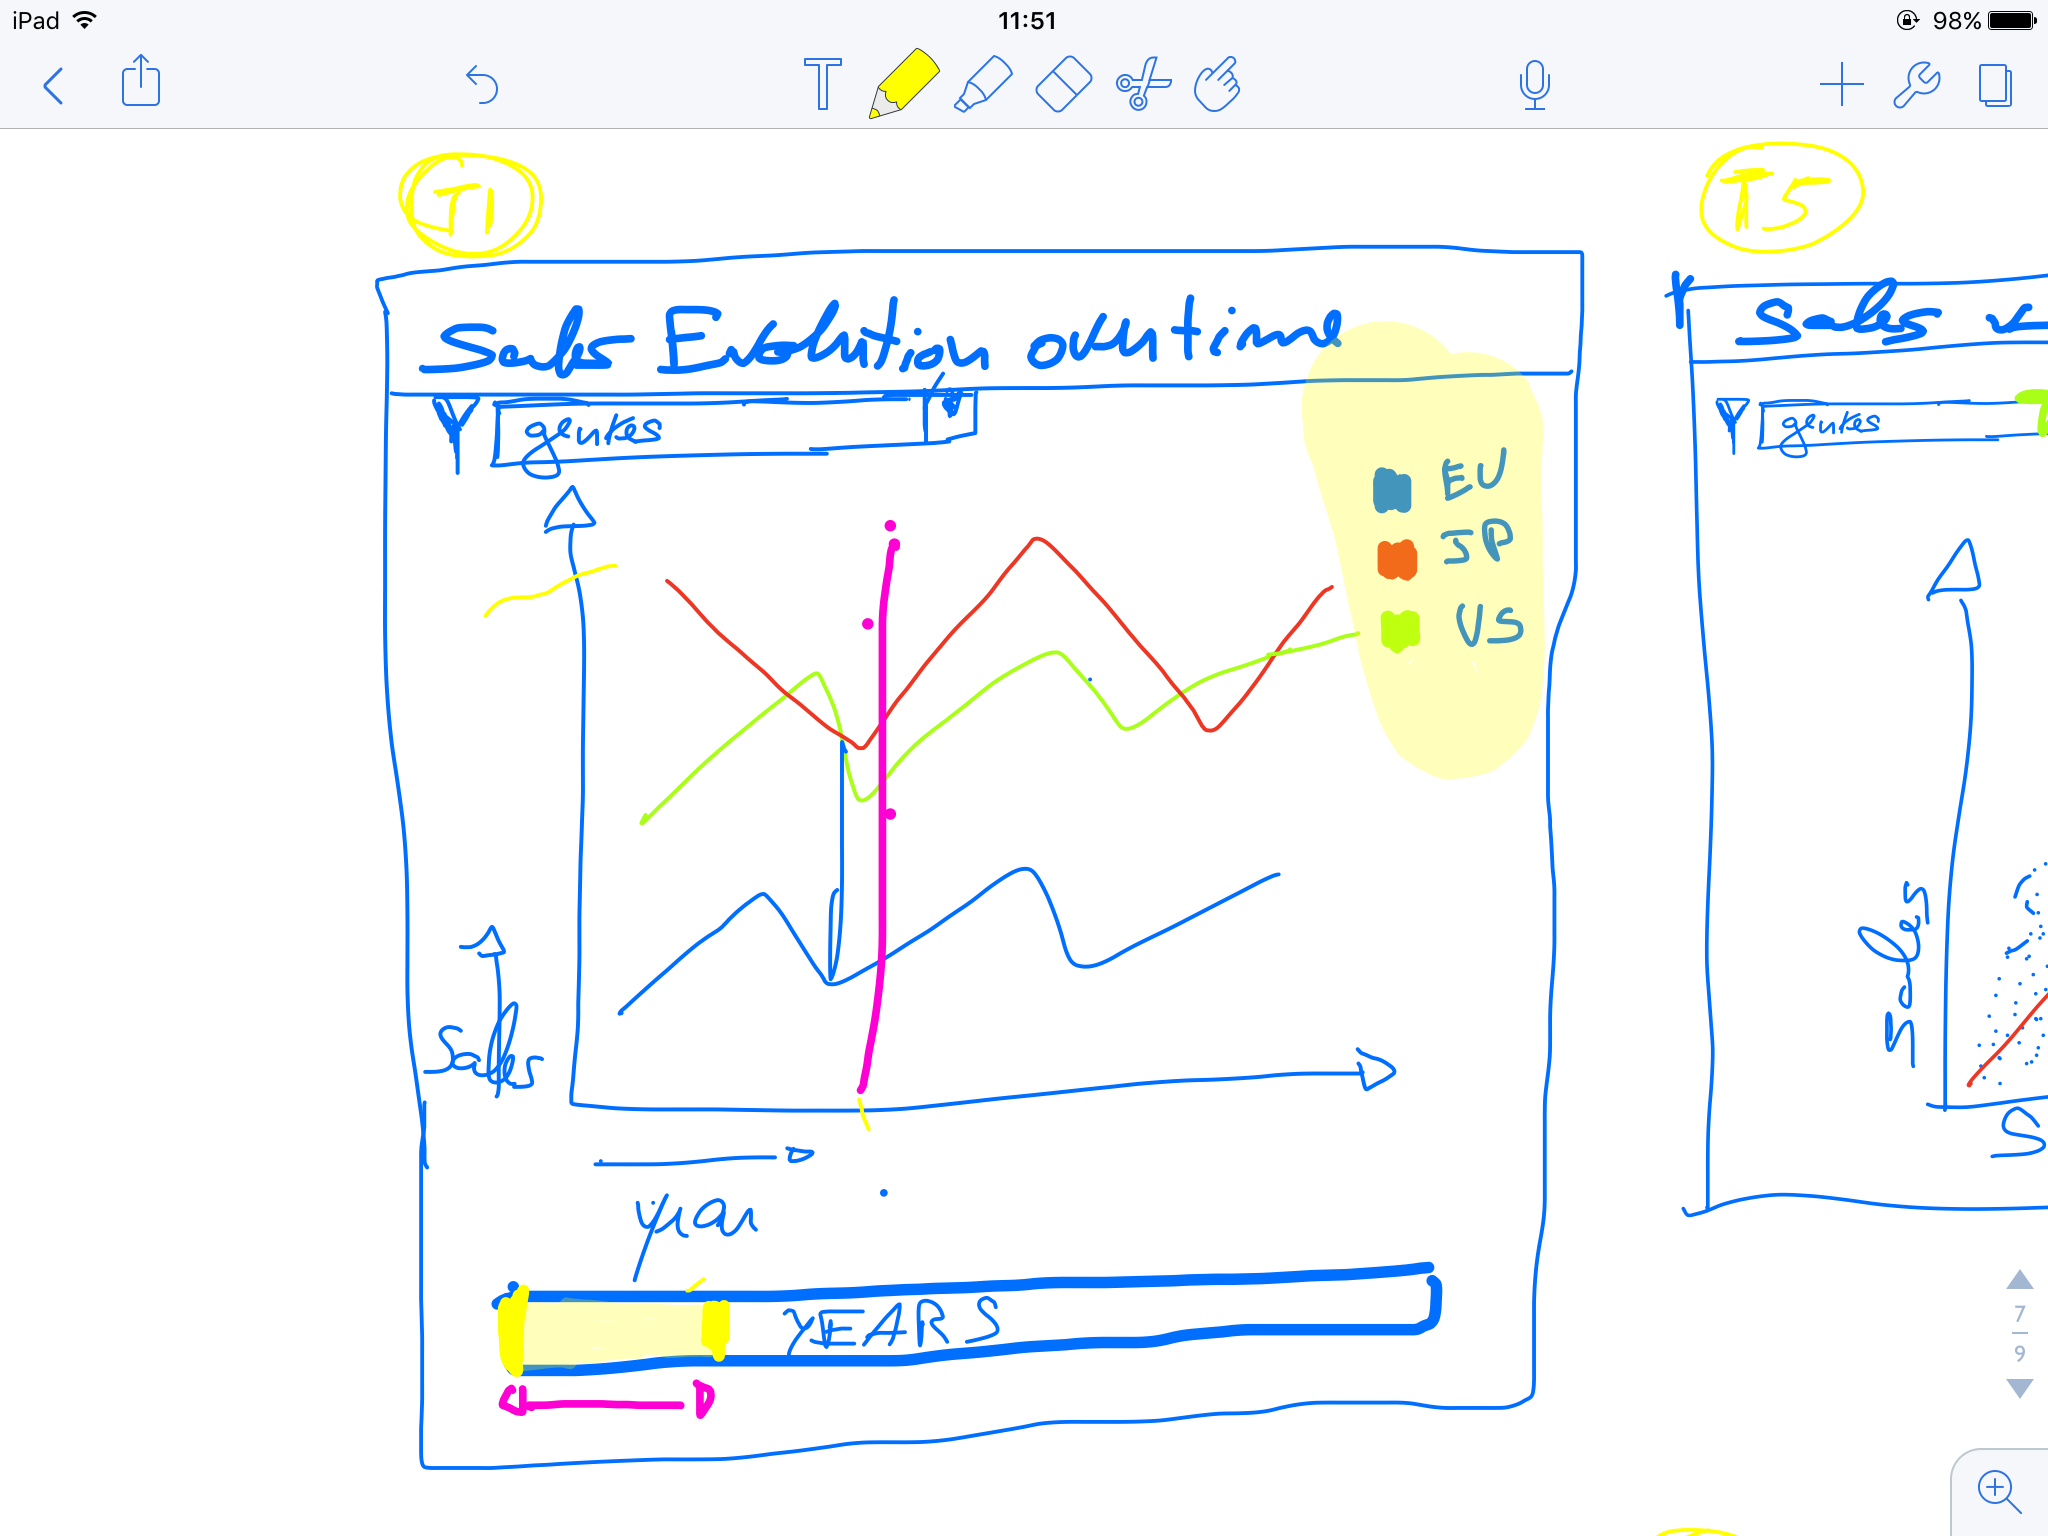 iPad 11:51 98%
T
T1
Sales Evolution overtime
genres
EU
JP
US
Sales
year
YEARS
T5
Sales v
genres
Sales
S
7
9